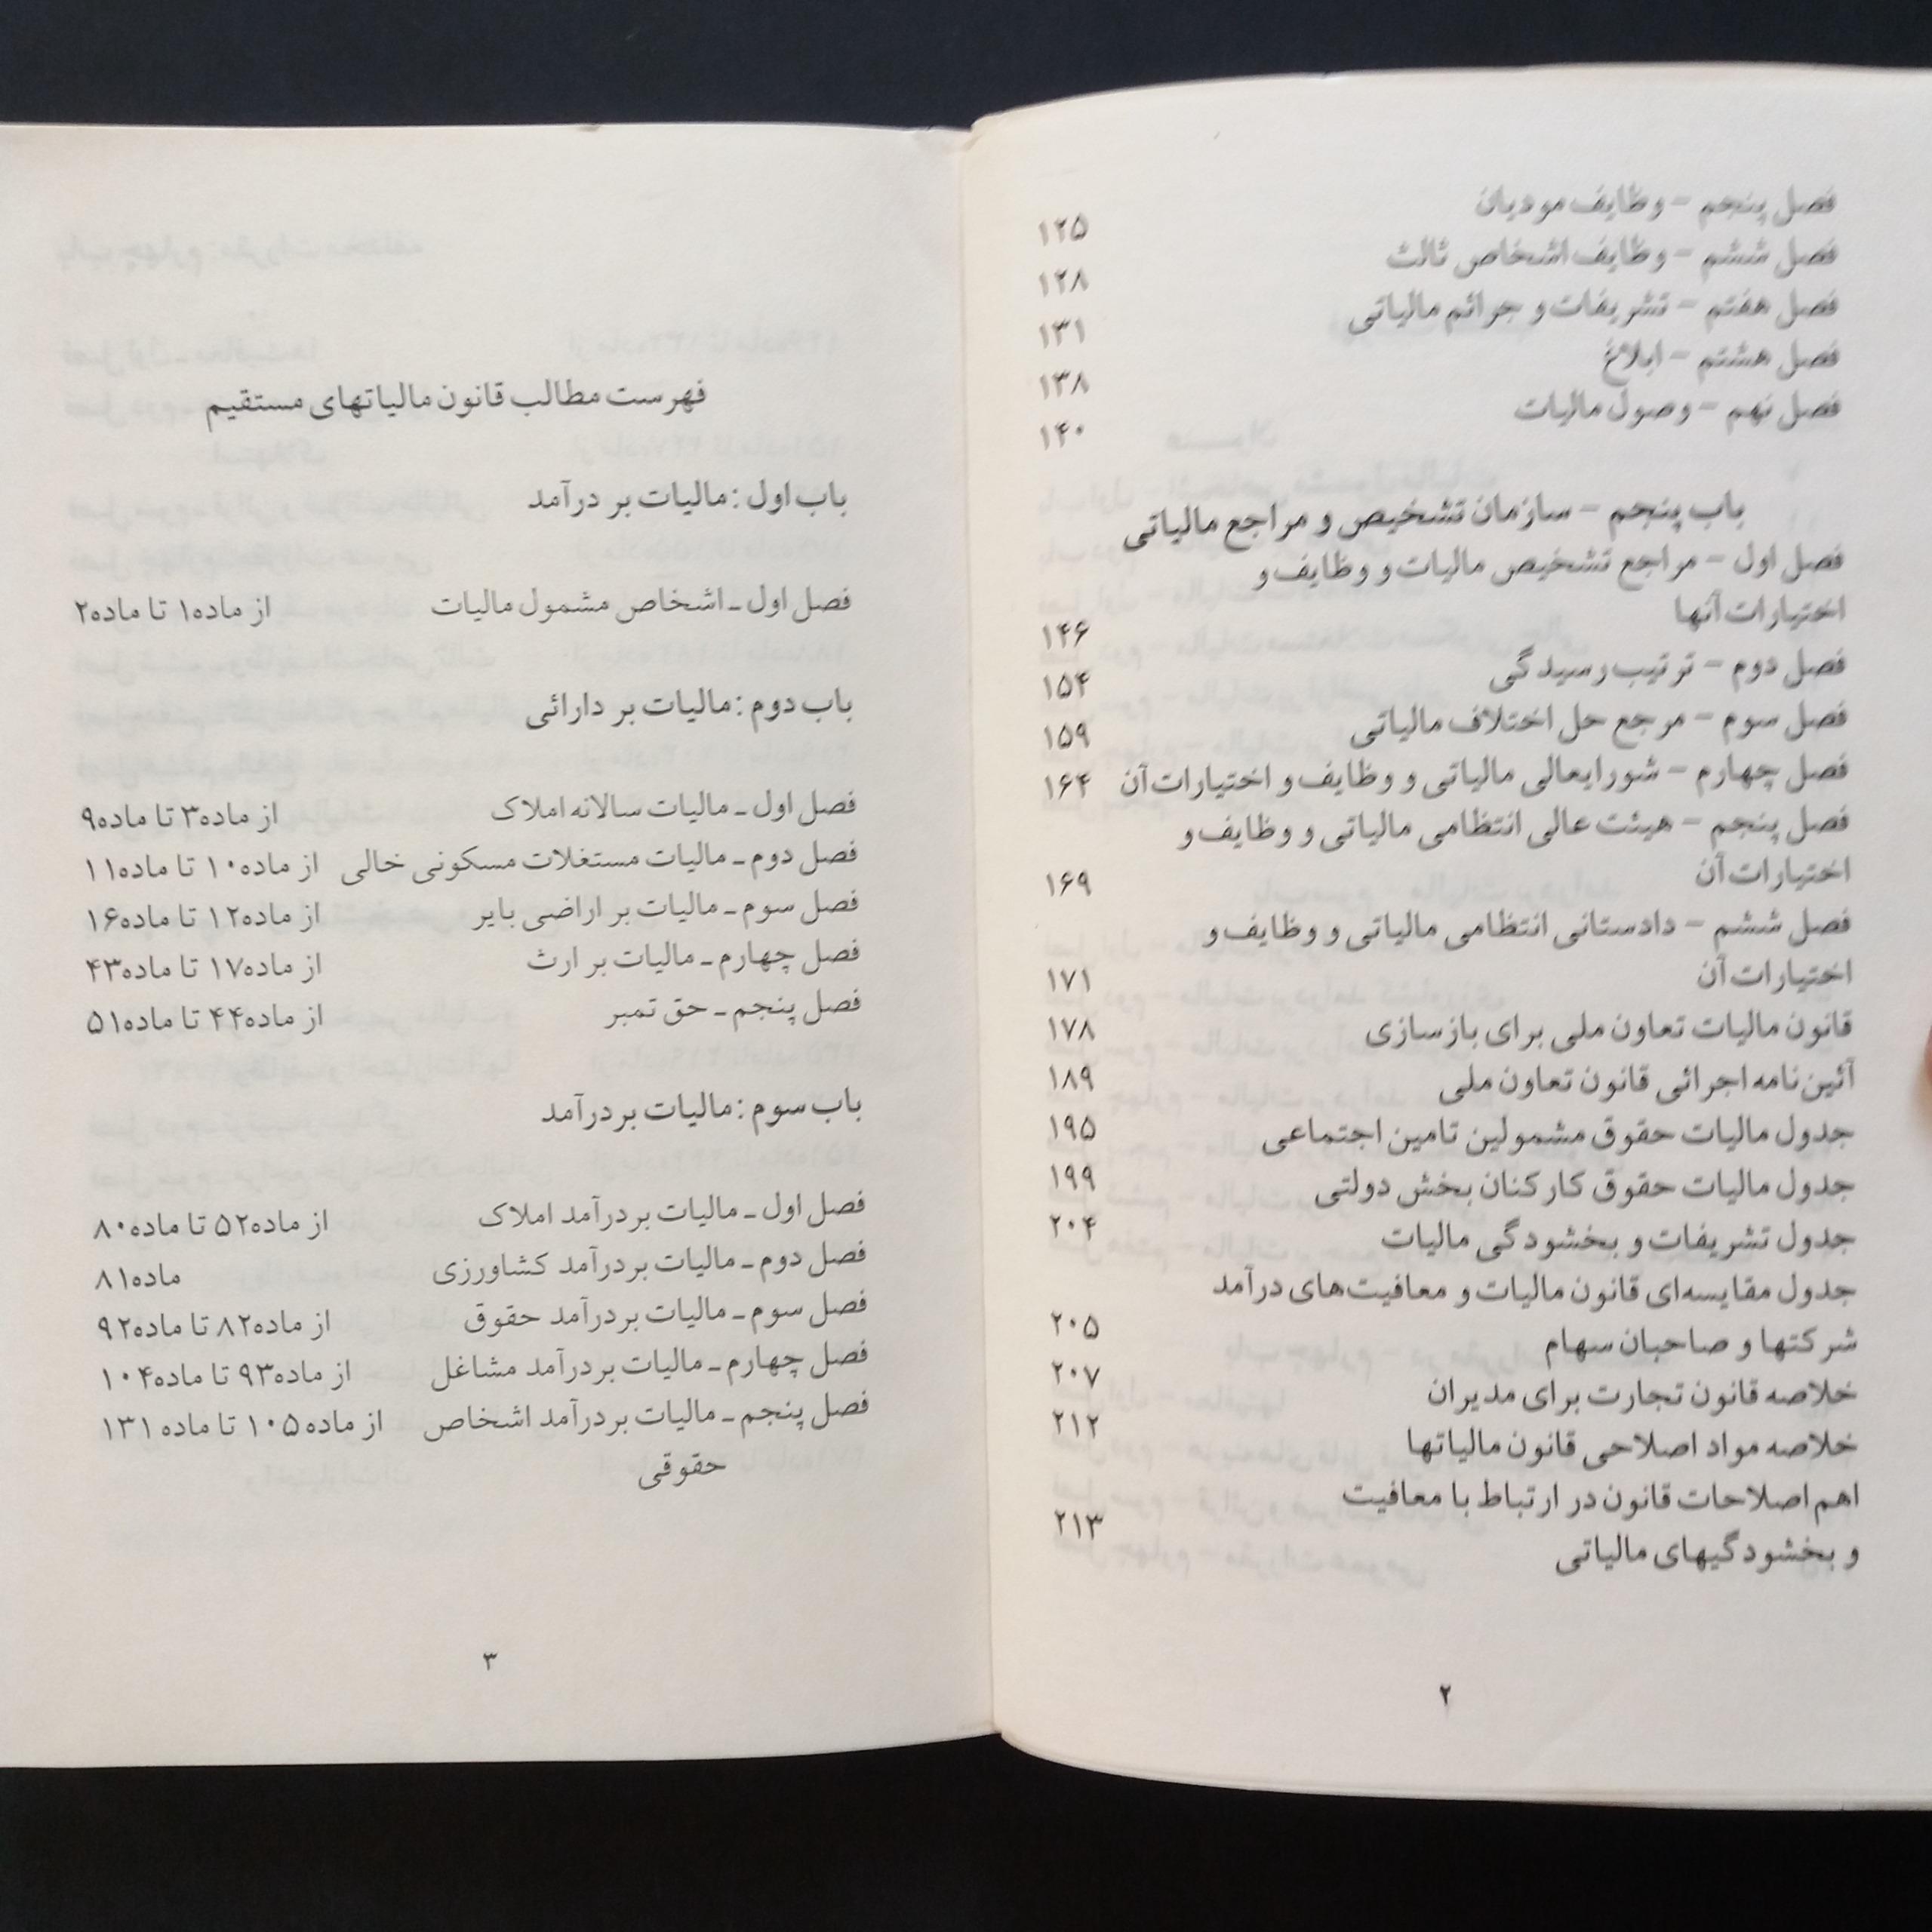 فصل پنجم - وظایف مودیان ۱۲۵
فصل ششم - وظایف اشخاص ثالث ۱۲۸
فصل هفتم - تشریفات و جرائم مالیاتی ۱۳۱
فصل هشتم - ابلاغ ۱۳۸
فصل نهم - وصول مالیات ۱۴۰
باب پنجم - سازمان تشخیص و مراجع مالیاتی
فصل اول - مراجع تشخیص مالیات و وظایف و
اختیارات آنها ۱۴۶
فصل دوم - ترتیب رسیدگی ۱۵۴
فصل سوم - مرجع حل اختلاف مالیاتی ۱۵۹
فصل چهارم - شورایعالی مالیاتی و وظایف و اختیارات آن ۱۶۴
فصل پنجم - هیئت عالی انتظامی مالیاتی و وظایف و
اختیارات آن ۱۶۹
فصل ششم - دادستانی انتظامی مالیاتی و وظایف و
اختیارات آن ۱۷۱
قانون مالیات تعاون ملی برای بازسازی ۱۷۸
آئین‌نامه اجرائی قانون تعاون ملی ۱۸۹
جدول مالیات حقوق مشمولین تامین اجتماعی ۱۹۵
جدول مالیات حقوق کارکنان بخش دولتی ۱۹۹
جدول تشریفات و بخشودگی مالیات ۲۰۴
جدول مقایسه‌ای قانون مالیات و معافیت‌های درآمد
شرکتها و صاحبان سهام ۲۰۵
خلاصه قانون تجارت برای مدیران ۲۰۷
خلاصه مواد اصلاحی قانون مالیاتها ۲۱۲
اهم اصلاحات قانون در ارتباط با معافیت
و بخشودگیهای مالیاتی ۲۱۳
۲
فهرست مطالب قانون مالیاتهای مستقیم
باب اول : مالیات بر درآمد
فصل اول ـ اشخاص مشمول مالیات از ماده۱ تا ماده۲
باب دوم : مالیات بر دارائی
فصل اول ـ مالیات سالانه املاک از ماده۳ تا ماده۹
فصل دوم ـ مالیات مستغلات مسکونی خالی از ماده۱۰ تا ماده۱۱
فصل سوم ـ مالیات بر اراضی بایر از ماده۱۲ تا ماده۱۶
فصل چهارم ـ مالیات بر ارث از ماده۱۷ تا ماده۴۳
فصل پنجم ـ حق تمبر از ماده۴۴ تا ماده۵۱
باب سوم : مالیات بر درآمد
فصل اول ـ مالیات بر درآمد املاک از ماده۵۲ تا ماده۸۰
فصل دوم ـ مالیات بر درآمد کشاورزی ماده۸۱
فصل سوم ـ مالیات بر درآمد حقوق از ماده۸۲ تا ماده۹۲
فصل چهارم ـ مالیات بر درآمد مشاغل از ماده۹۳ تا ماده۱۰۴
فصل پنجم ـ مالیات بر درآمد اشخاص از ماده ۱۰۵ تا ماده ۱۳۱
حقوقی
۳